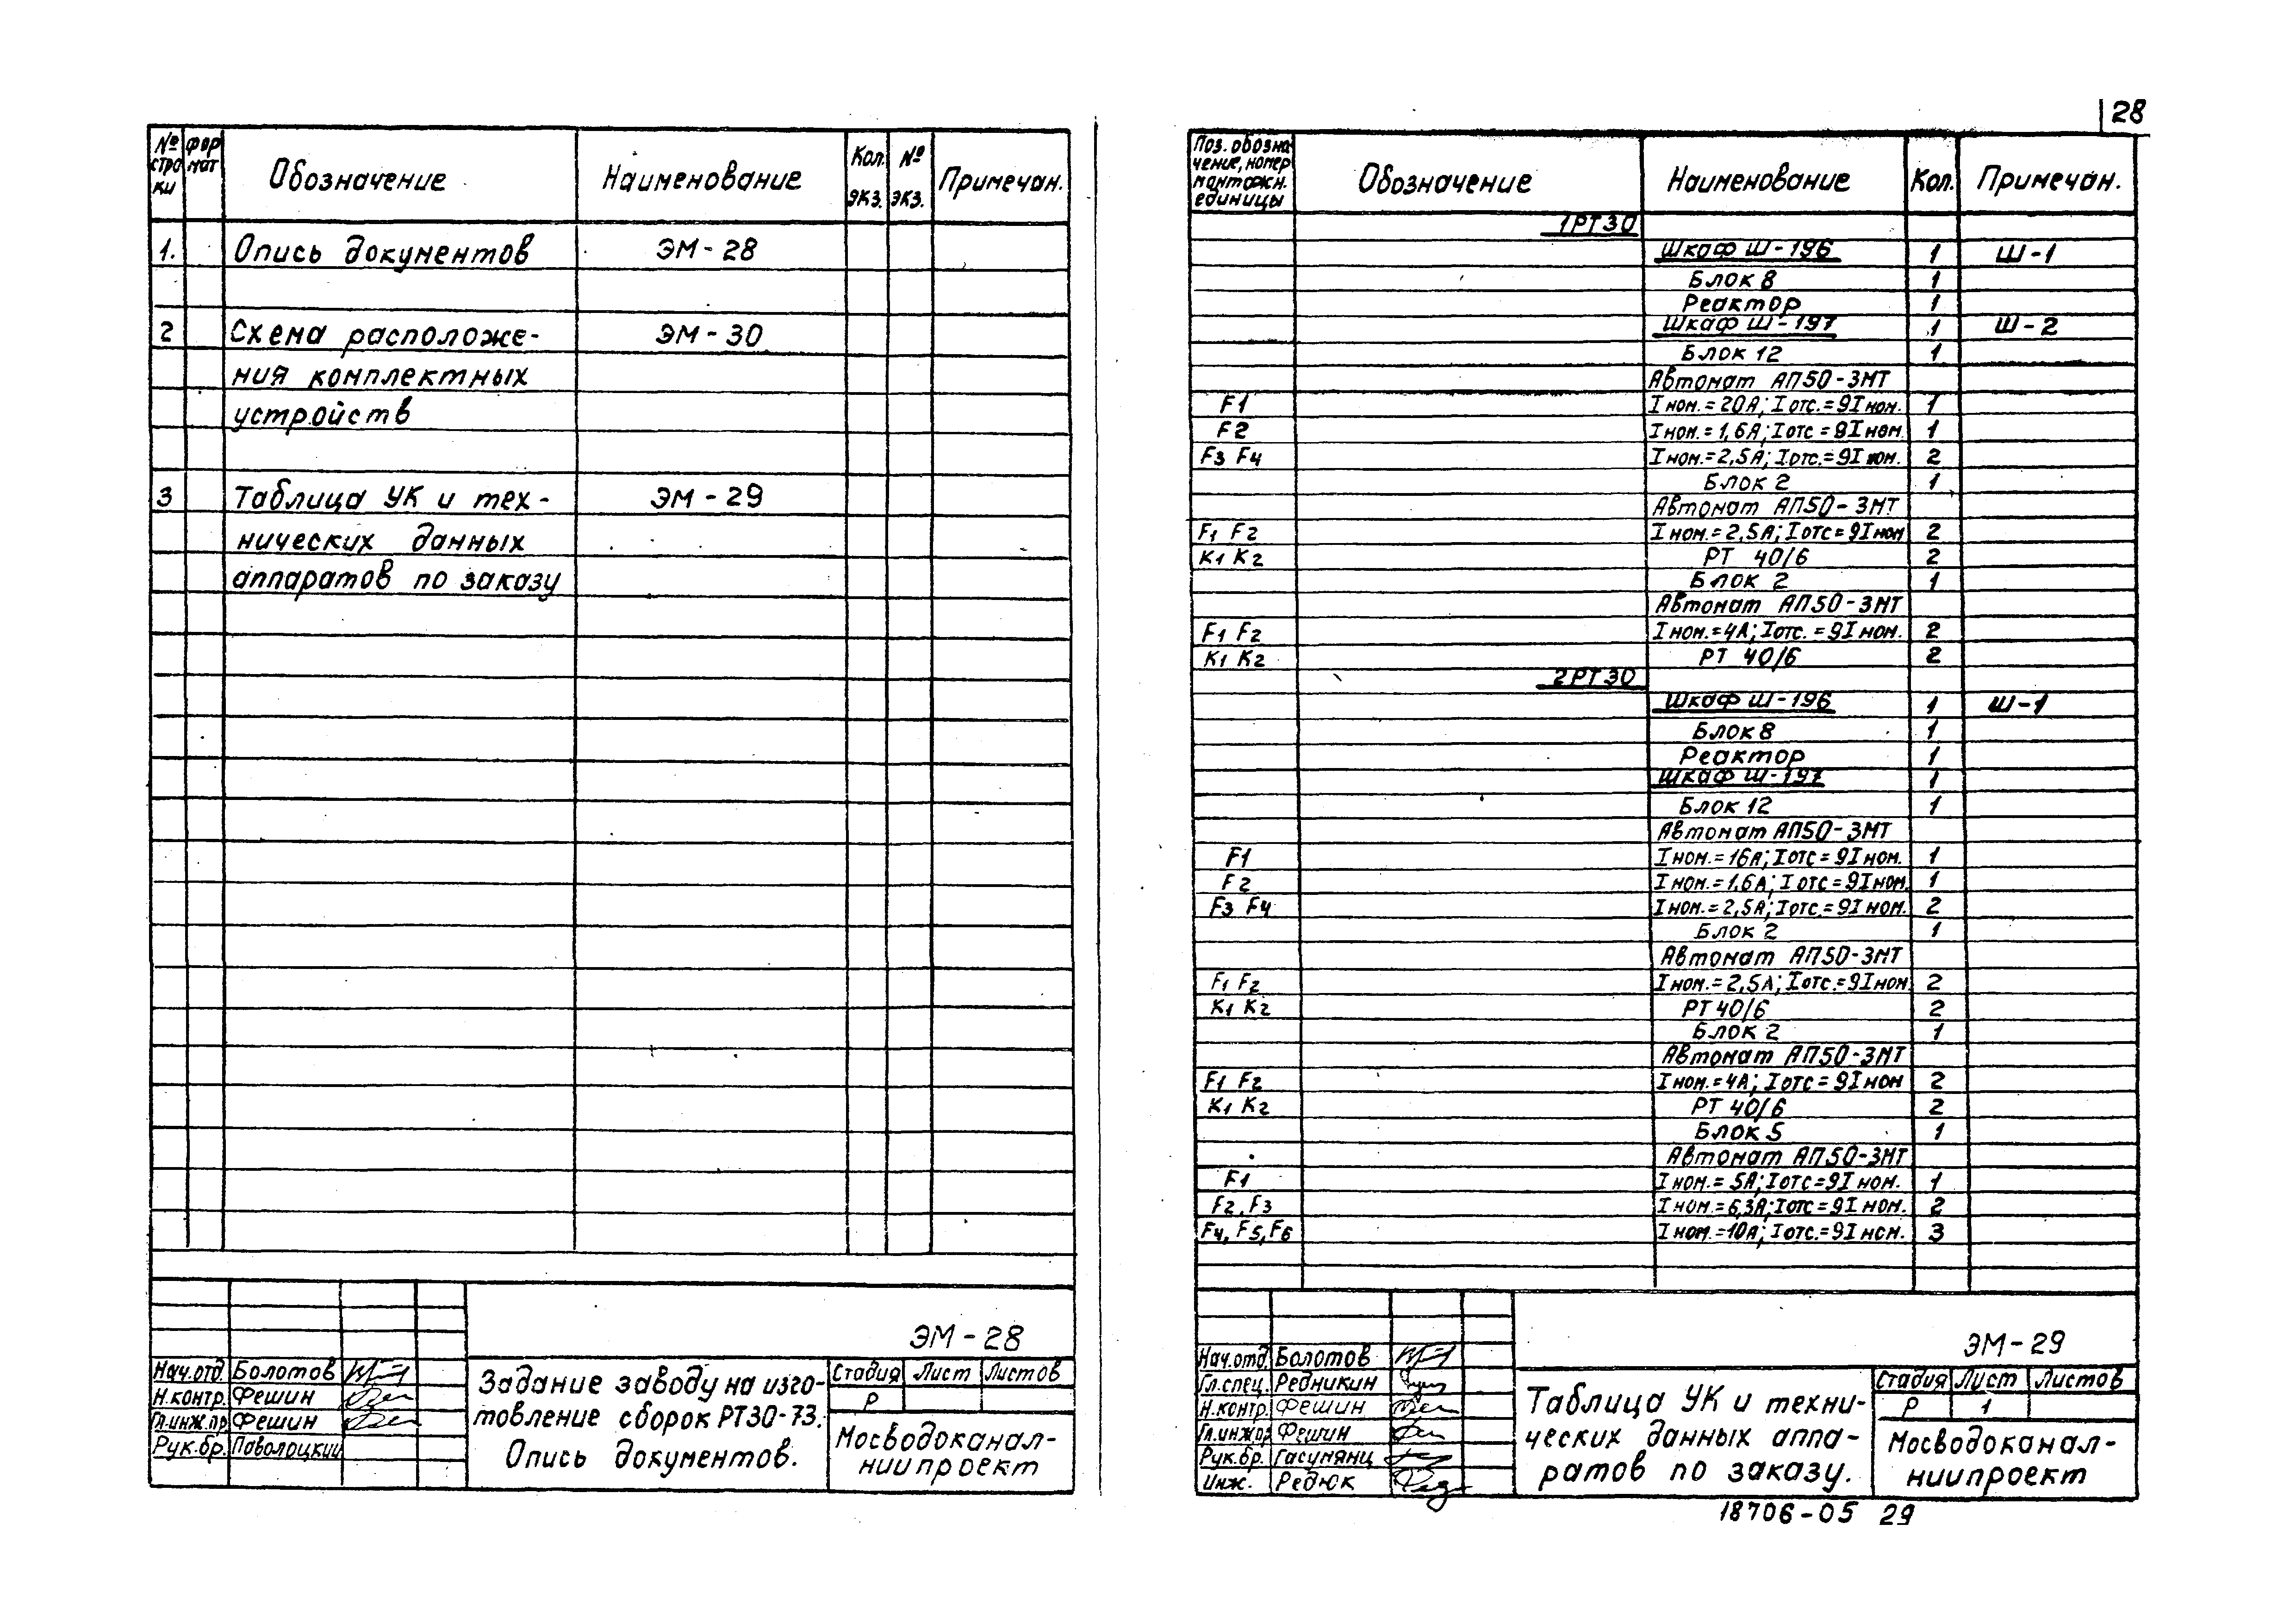 28
№ строки Формат Обозначение Наименование Кол. экз. № экз. Примечан.
1. Опись документов ЭМ-28
2 Схема расположе- ЭМ-30
ния комплектных
устройств
3 Таблица УК и тех- ЭМ-29
нических данных
аппаратов по заказу
ЭМ-28
Нач.отд. Болотов
Н.контр. Фешин
Гл.инж.пр. Фешин
Рук.бр. Паволоцкий
Задание заводу на изго-
товление сборок РТ30-73.
Опись документов.
Стадия Лист Листов
Р
Мосводоканал-
ниипроект
Поз. обозна-
чение, номер
монтажн.
единицы
Обозначение Наименование Кол. Примечан.
1РТ30
Шкаф Ш-196 1 Ш-1
Блок 8 1
Реактор 1
Шкаф Ш-197 1 Ш-2
Блок 12 1
Автомат АП50-3МТ
F1 Iном.=20А; Iотс.=9Iном. 1
F2 Iном.=1,6А; Iотс=9Iном. 1
F3 F4 Iном.=2,5А; Iотс.=9Iном. 2
Блок 2 1
Автомат АП50-3МТ
F1 F2 Iном.=2,5А; Iотс=9Iном 2
К1 К2 РТ 40/6 2
Блок 2 1
Автомат АП50-3МТ
F1 F2 Iном.=4А; Iотс.=9Iном. 2
К1 К2 РТ 40/6 2
2РТ30
Шкаф Ш-196 1 Ш-1
Блок 8 1
Реактор 1
Шкаф Ш-197 1
Блок 12 1
Автомат АП50-3МТ
F1 Iном.=16А; Iотс=9Iном. 1
F2 Iном.=1,6А; Iотс=9Iном. 1
F3 F4 Iном.=2,5А; Iотс.=9Iном. 2
Блок 2 1
Автомат АП50-3МТ
F1 F2 Iном.=2,5А; Iотс.=9Iном 2
К1 К2 РТ 40/6 2
Блок 2 1
Автомат АП50-3МТ
F1 F2 Iном.=4А; Iотс=9Iном 2
К1 К2 РТ 40/6 2
Блок 5 1
Автомат АП50-3МТ
F1 Iном.=5А; Iотс=9Iном. 1
F2, F3 Iном.=6,3А; Iотс=9Iном. 2
F4, F5, F6 Iном.=10А; Iотс.=9Iном. 3
ЭМ-29
Нач.отд. Болотов
Гл.спец. Редникин
Н.контр. Фешин
Гл.инж.пр. Фешин
Рук.бр. Гасумянц
Инж. Редюк
Таблица УК и техни-
ческих данных аппа-
ратов по заказу.
Стадия Лист Листов
Р 1
Мосводоканал-
ниипроект
18706-05 29